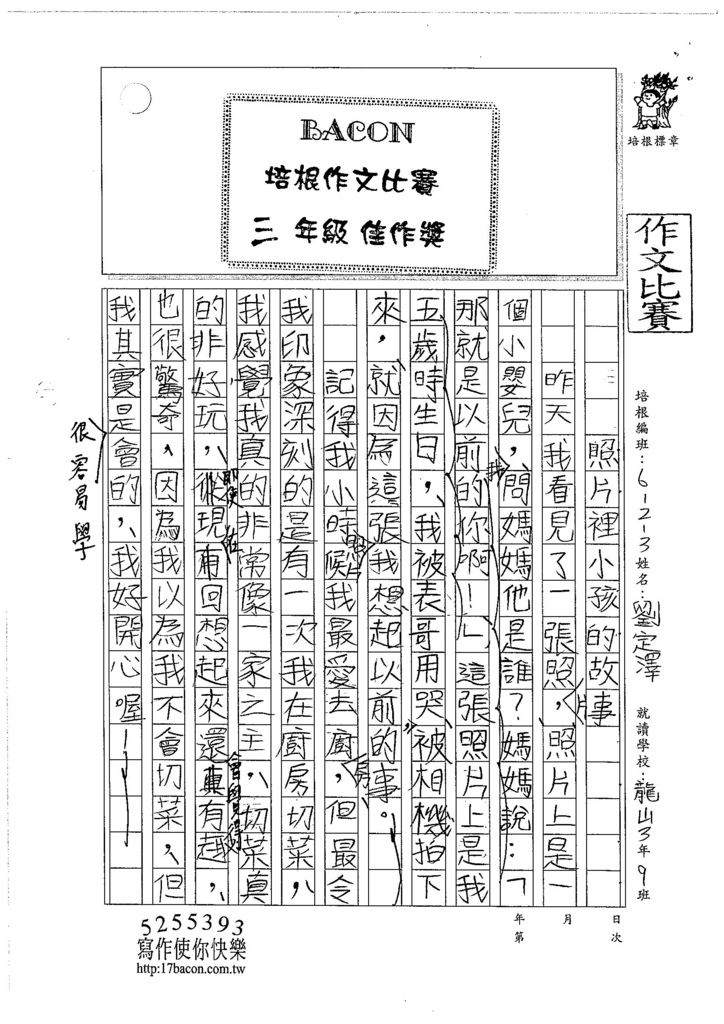 BACON
培根作文比賽
三 年級 佳作獎
培根標章
作文比賽
培根編班：6-2-3 姓名：劉定澤 就讀學校：龍山3年9班
年 月 日
第 次
照片裡小孩的故事
昨天我看見了一張照，照片上是一
片
個小嬰兒，問媽媽他是誰？媽媽說：「
我
那就是以前的你啊！」這張照片上是我
五歲時生日，我被表哥用哭，被相機拍下
來，就因為這張我想起以前的事。
照片
記得我小時候我最愛去廚，但最令
房
我印象深刻的是有一次我在廚房切菜，
我感覺我真的非常像一家之主，切菜真
的非好玩，現回想起來還有趣，
即使
在
會覺得
也很驚奇，因為我以為我不會切菜，但
我其實是會的，我好開心喔！
很容易學
5255393
寫作使你快樂
http:17bacon.com.tw